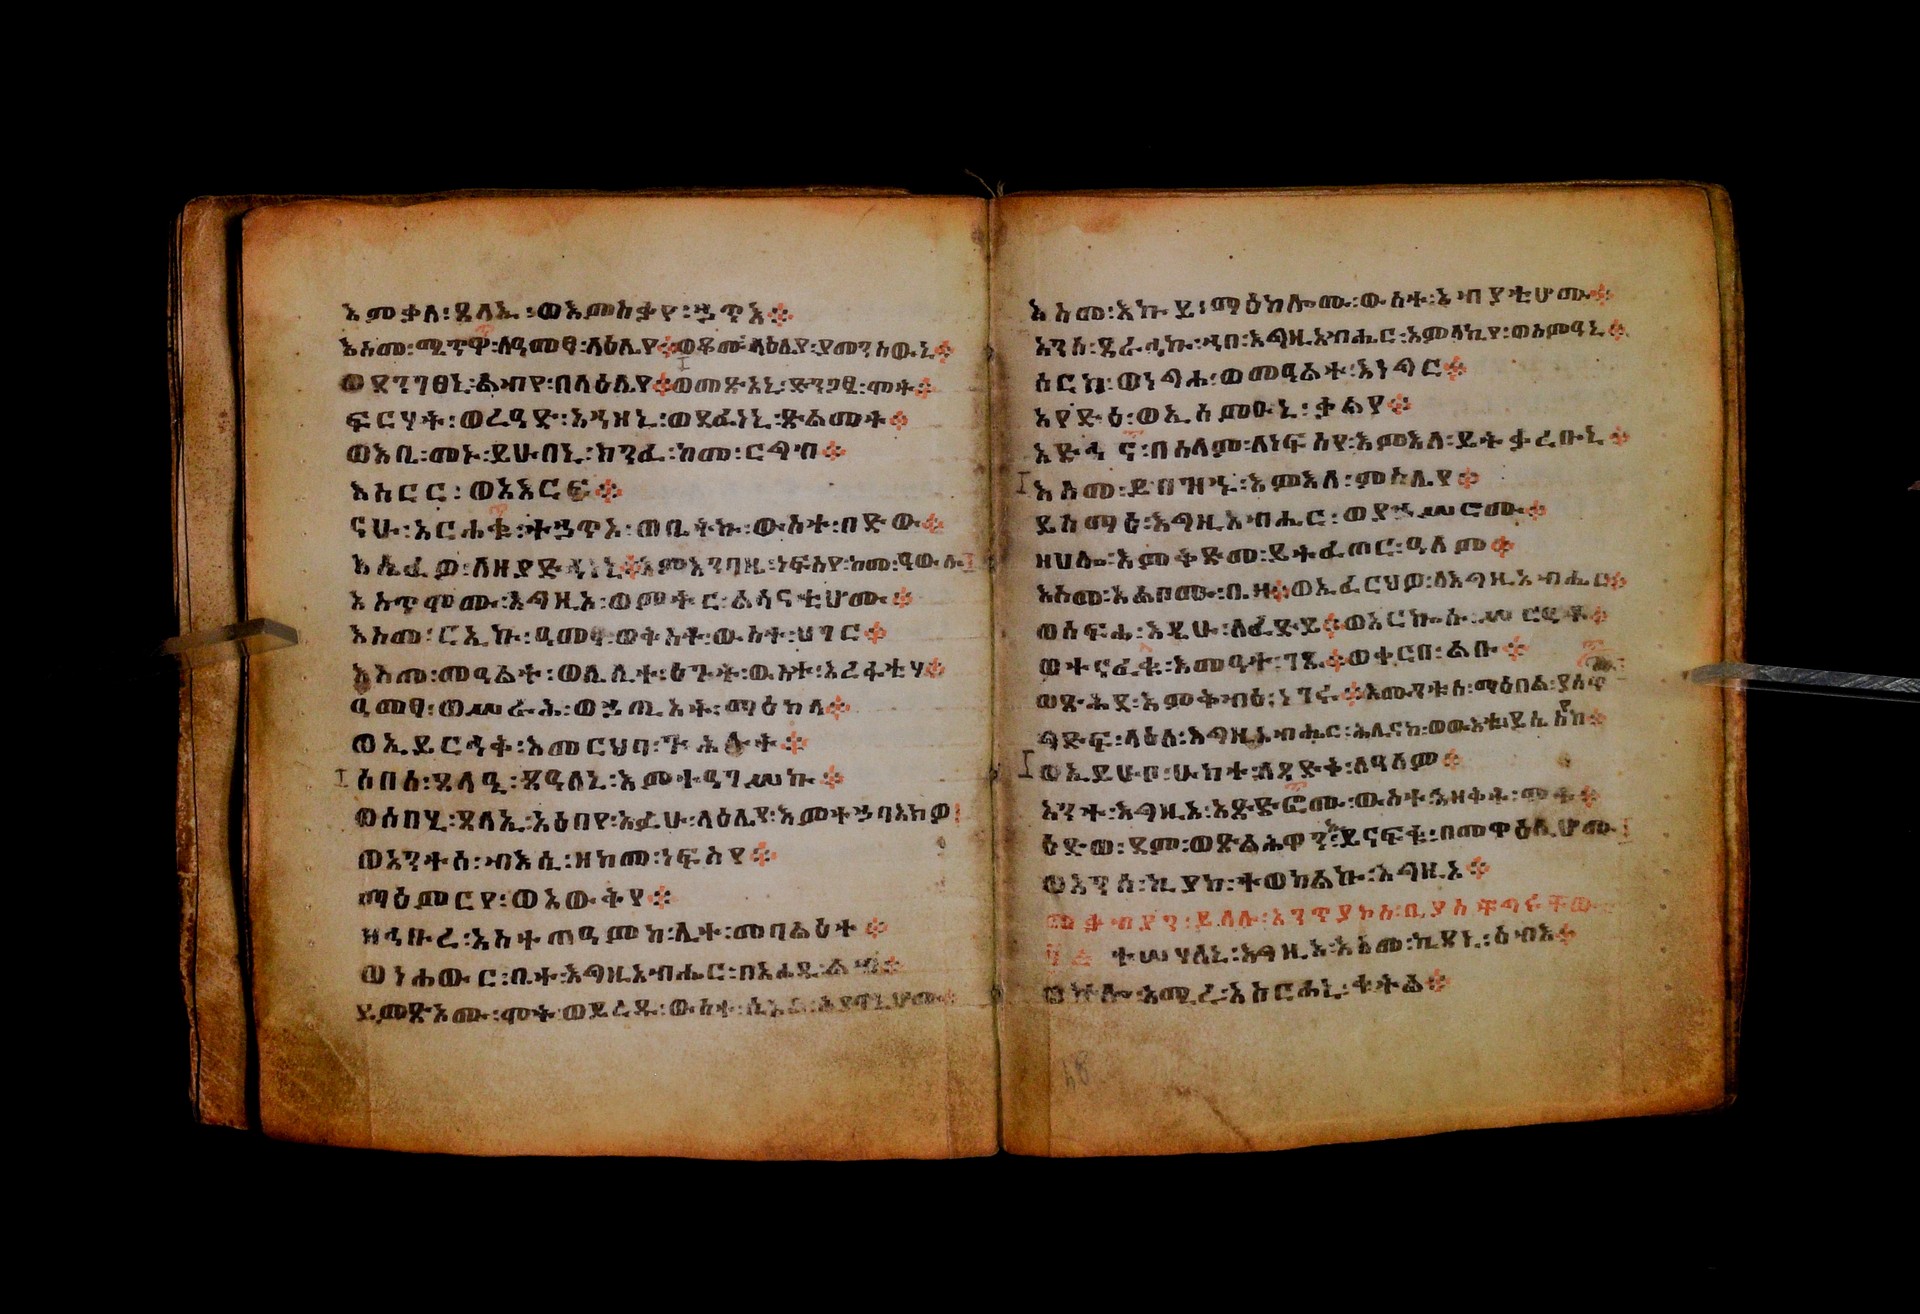 እምቃለ፡ጸላኢ፡ወእምስቃየ፡ኃጥእ፨
እስመ፡ሜጥዋ፡ለዓመፃ፡ላዕሌየ፨ላዕሌየ፡
ወደንገፀኒ፡ልብየ፡በላዕሌየ፨ወመጽአኒ፡ድንጋፄ፡ሞት፨
ፍርሃት፡ወረዓድ፡አኀዘኒ፡ወደፈነኒ፡ጽልመት፨
ወእቤ፡መኑ፡ይሁበኒ፡ክንፈ፡ከመ፡ርግብ፨
እስርር፡ወአእርፍ፨
ናሁ፡አርሐቁ፡ተኃጥአ፡ወቤትኩ፡ውስተ፡በድው፨
እሴፈዎ፡ለዘያድኅነኒ፨ነፍስየ፡ከመ፡ዓውሎ
አስጥሞሙ፡እግዚኦ፡ወምትር፡ልሳናቲሆሙ፨
እስመ፡ርኢኩ፡ዓመፃ፡ውስተ፡ሀገር፨
እስመ፡መዓልተ፡ወሌሊተ፡ዕጉት፡ውስተ፡አረፋቲሃ፨
ዓመፃ፡ወሣራሕ፡ወኃጢአት፡ማዕከላ፨
ወኢይርኅቅ፡እመርህባ፡ጕሕሉት፨
ሶበሰ፡ጸላዒ፡ጸዓለኒ፡እምተዓገሥኩ፨
ወሶበሂ፡ጸላኢ፡አዕበየ፡አፈሁ፡ላዕሌየ፡እምተኃባእክዎ፡
ወአንተሰ፡ብእሲ፡ዘከመ፡ነፍስየ፨
ማዕምርየ፡ወእውትየ፨
ዘኅቡረ፡አስተጠዓምከ፡ሊተ፡መባልዕተ፨
ወነሐውር፡ቤተ፡እግዚአብሔር፡በአሐዱ፡ልብ፨
ይምጽአሙ፡ሞት፡ወይረዱ፡ውስተ፡ሲኦል፡ሕያዋኒሆሙ፨
እስመ፡እኩይ፡ማዕከሎሙ፡ውስተ፡አብያቲሆሙ፨
አንሰ፡ጸራኅኩ፡ኀበ፡እግዚአብሔር፡
ሰርከ፡ወነግሐ፡ወመዓልተ፡እነግር፨
እየድዕ፡ወኢሰምዑኒ፡ቃልየ፨
አድኅና፡በሰላም፡ለነፍስየ፡እምእለ፡ይትቃረቡኒ፨
እስመ፡ይበዝኁ፡እምእለ፡ምስሌየ፨
ይስማዕ፡እግዚአብሔር፡ወያኃሥሮሙ፨
ዘሀሎ፡እምቅድመ፡ይትፈጠር፡ዓለም፨
እስመ፡አልቦሙ፡ቤዛ፨ወኢፈርህዎ፡ለእግዚአብሔር፨
ወሰፍሐ፡እዴሁ፡ለፈድይ፨ወአርኰሱ፡ሥርዓቶ፨
ወተናፈቁ፡እመዓተ፡ገጹ፨ወቀርበ፡ልቡ፨
ወጽሕደ፡እምቅብዕ፡ነገሩ፨
ላዕለ፡እግዚአብሔር፡ሕሊናከ፡ወውእቱ፡ይሴስየከ፨
ወኢይሁብ፡ሁከተ፡ለጻድቅ፡ለዓለም፨
አንተ፡እግዚኦ፡አጽድፎሙ፡ውስተ፡አዘቅተ፡ሞት፨
ዕድወ፡ደም፡
ወአንሰ፡ኪያከ፡ተወከልኩ፡እግዚኦ፨
ተሣሃለኒ፡እግዚኦ፡እስመ፡ኬደኒ፡ዕብእ፨
ወኵሎ፡አሚረ፡አስርሐኒ፡ቀትል፨